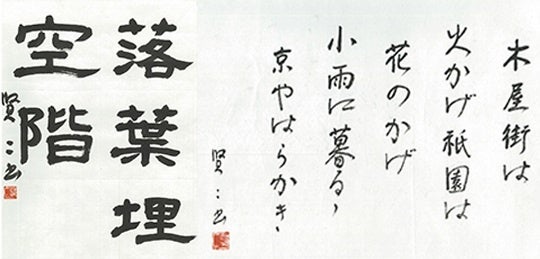 木屋街は
火かげ祇園は
花のかげ
小雨に暮るゝ
京やはらかき
賢二書
落葉埋
空階
賢二書